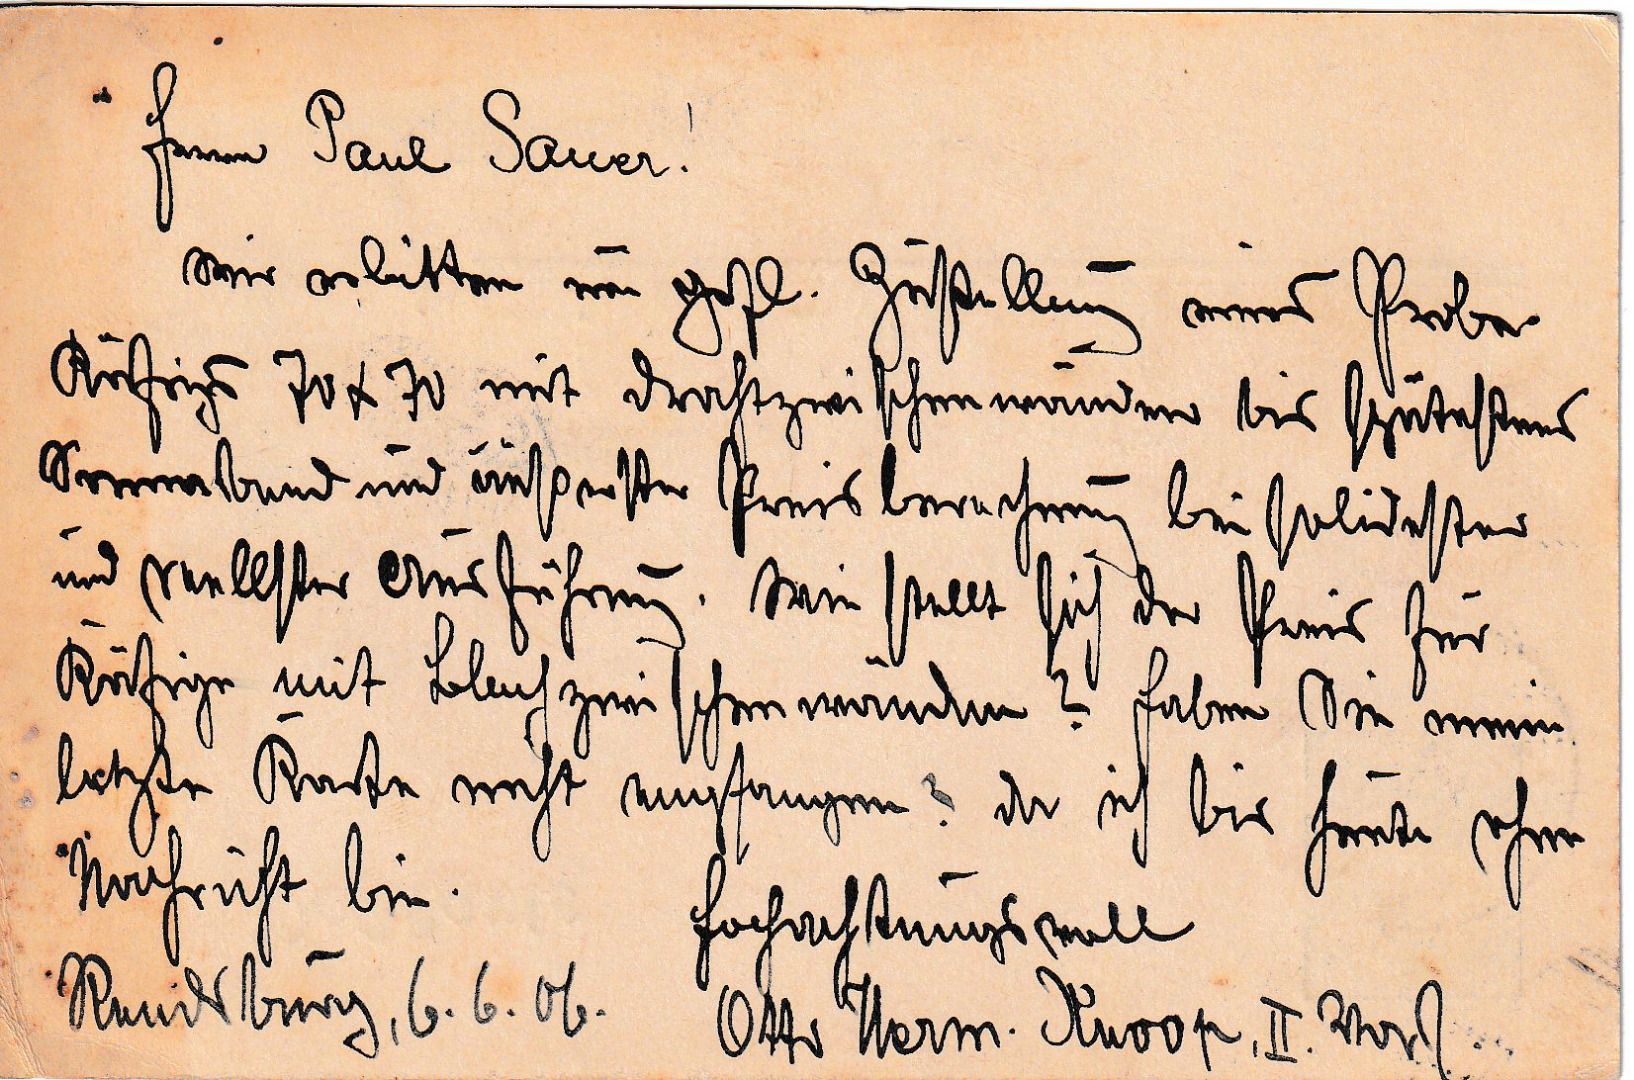 Herrn Paul Sauer!
Wir erbitten um gefl. Zustellung eines Probe
Käfigs 70 x 70 mit Drahtzwischenwänden bis spätestens
Sonnabend und äußerster Preisberechnung bei solidester
und reellster Ausführung. Wie stellt sich der Preis für
Käfige mit Blechzwischenwänden? Haben Sie meine
letzte Karte nicht empfangen? da ich bis heute ohne
Nachricht bin.
Hochachtungsvoll
Rendsburg, 6. 6. 06.
Otto Herm. Knoop, II. Vors.